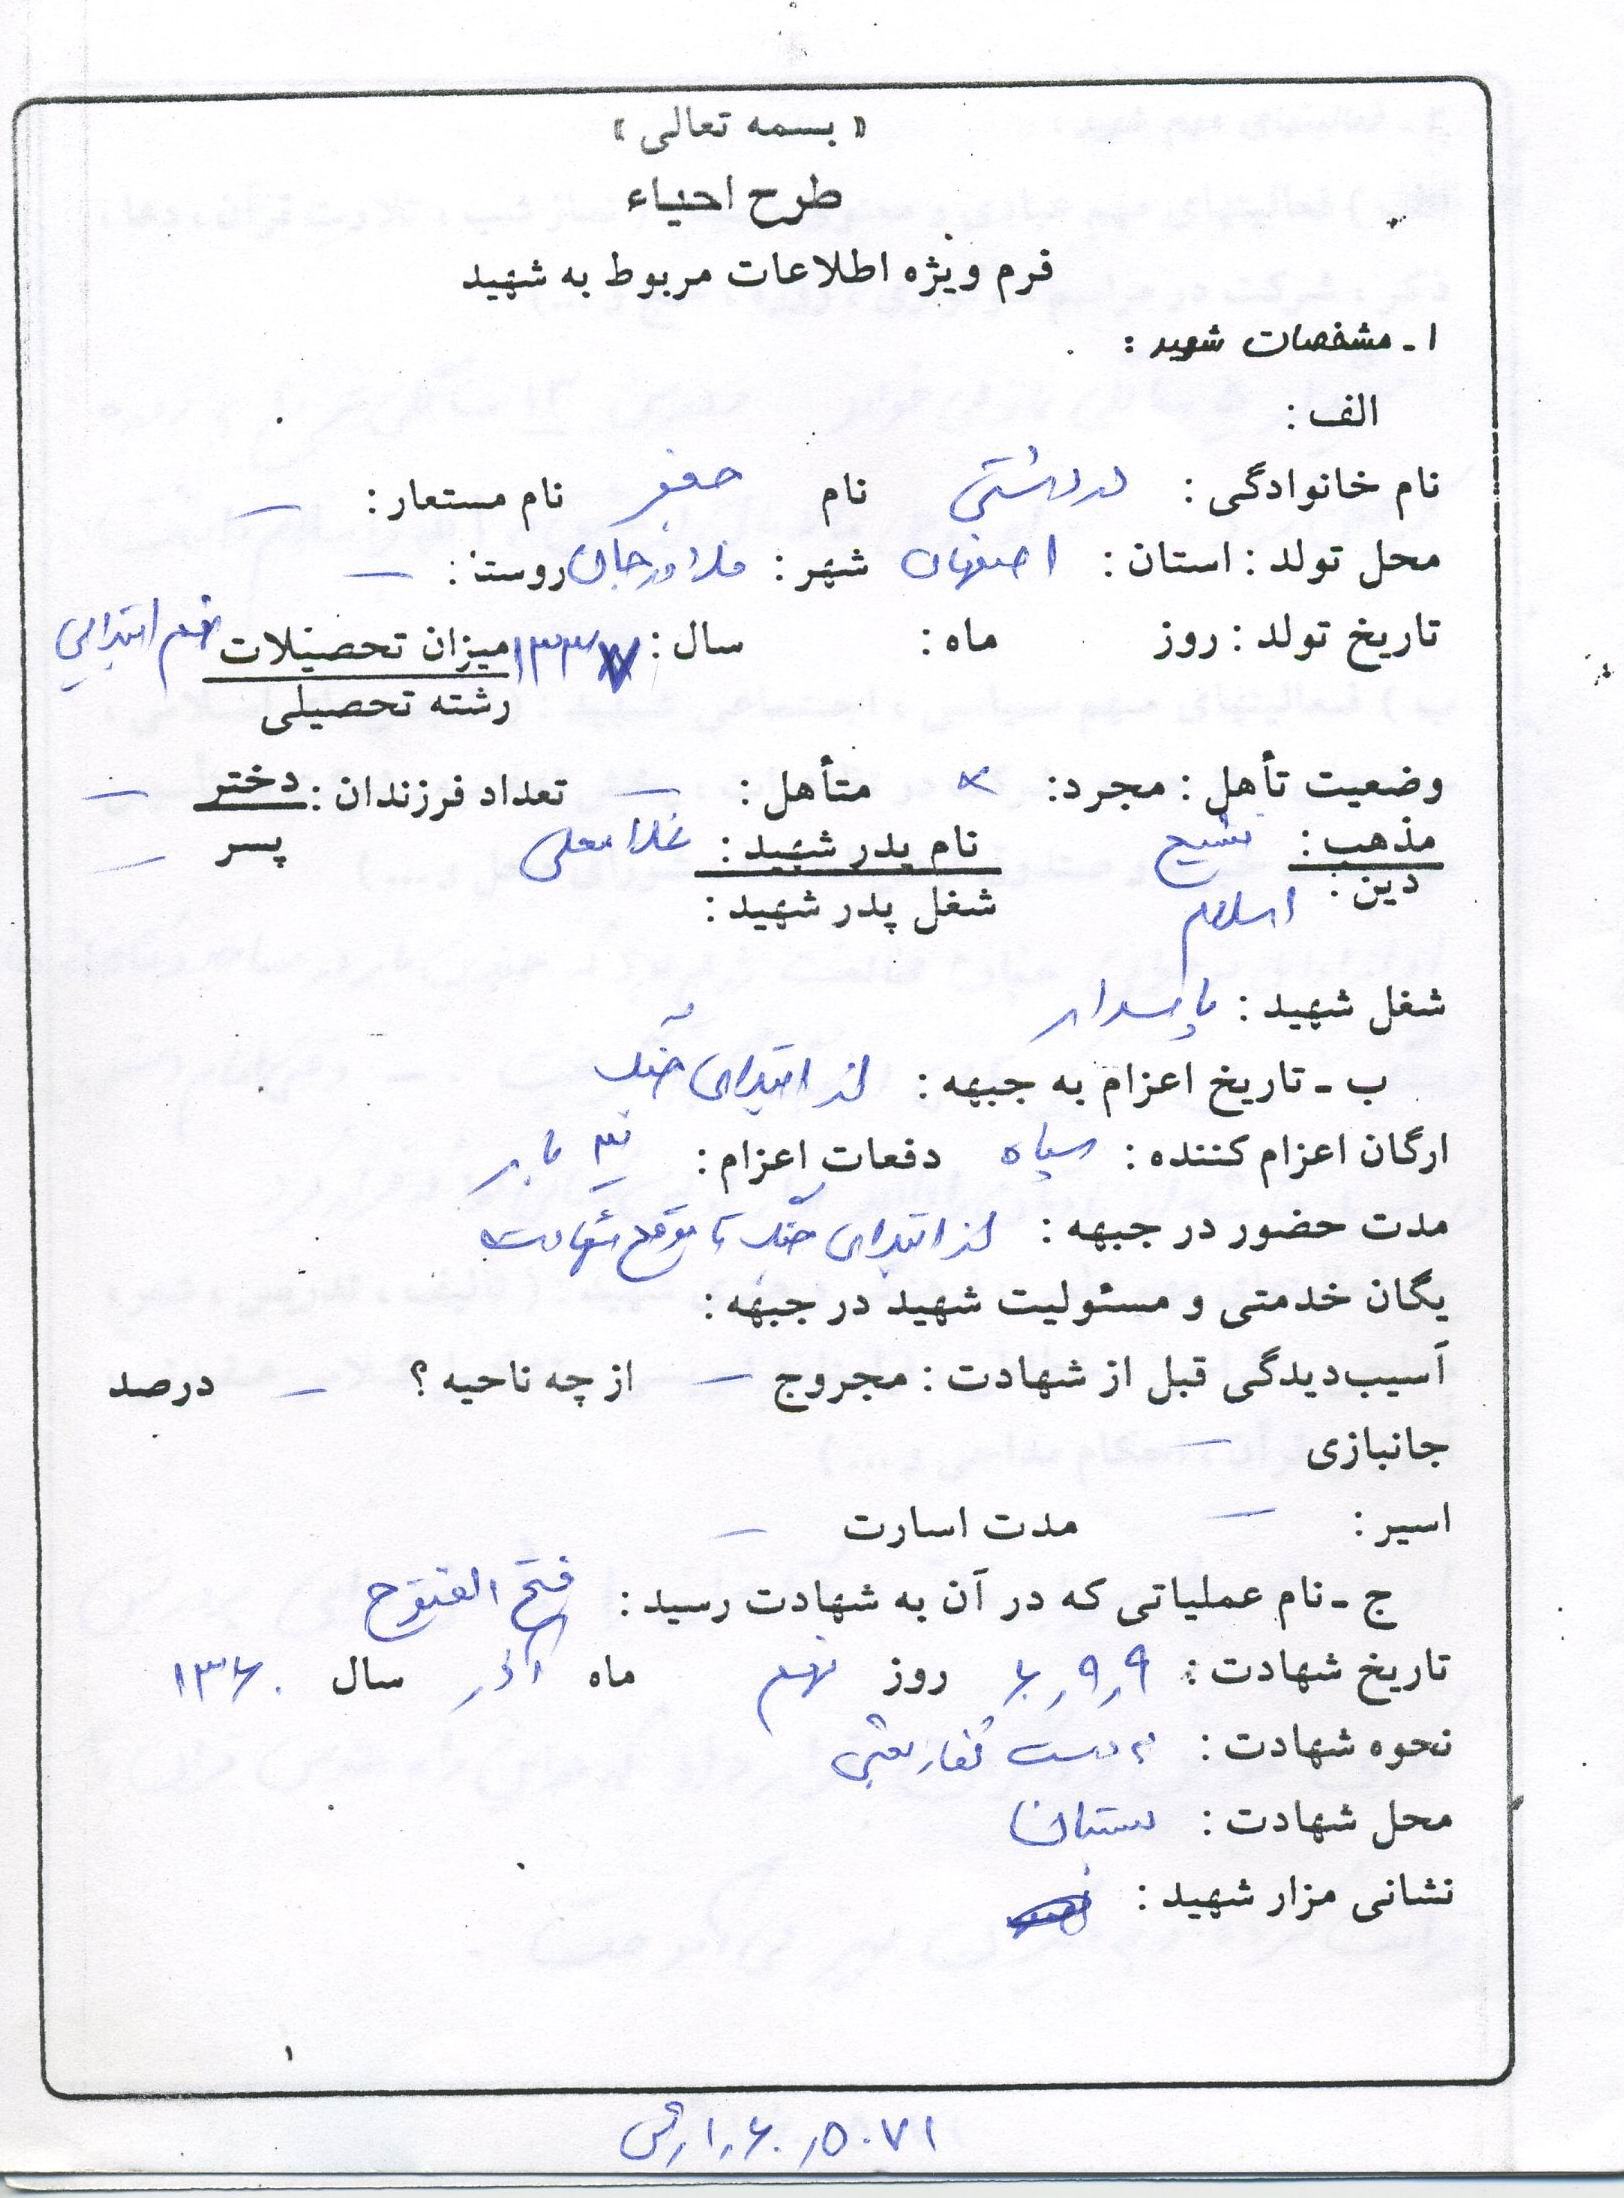 « بسمه تعالی »
طرح احیاء
فرم ویژه اطلاعات مربوط به شهید
۱ـ مشخصات شهید :
الف :
نام خانوادگی : دردشتی نام جعفر نام مستعار : —
محل تولد : استان : اصفهان شهر : فلاورجان روستا : —
تاریخ تولد : روز ماه : سال : ۱۳۳۷ میزان تحصیلات پنجم ابتدایی
رشته تحصیلی
وضعیت تأهل : مجرد : × متأهل : — تعداد فرزندان : دختر —
مذهب : تشیع نام پدر شهید : غلامعلی پسر —
دین : اسلام شغل پدر شهید :
شغل شهید : پاسدار
ب ـ تاریخ اعزام به جبهه : از ابتدای جنگ
ارگان اعزام کننده : سپاه دفعات اعزام : بار
مدت حضور در جبهه : از ابتدای جنگ تا موقع شهادت
یگان خدمتی و مسئولیت شهید در جبهه :
آسیب‌دیدگی قبل از شهادت : مجروح — از چه ناحیه ؟ — درصد
جانبازی —
اسیر : — مدت اسارت —
ج ـ نام عملیاتی که در آن به شهادت رسید : فتح الفتوح
تاریخ شهادت : ۶۰٫۹٫۹ روز نهم ماه آذر سال ۱۳۶۰
نحوه شهادت : به دست کفار بعثی
محل شهادت : بستان
نشانی مزار شهید :
۱